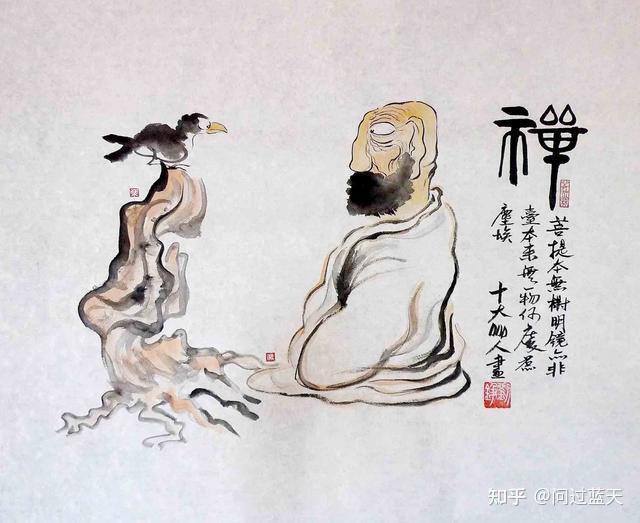 禪
菩提本無樹明鏡亦非
臺本来無一物何處惹
塵埃
十大人畫
知乎 @问过蓝天